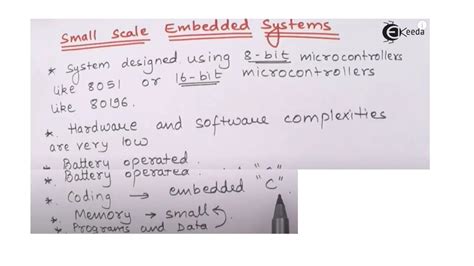 Small Scale Embedded Systems
EKeeda
* System designed using 8-bit microcontrollers
like 8051 or 16-bit microcontrollers
like 80196.
* Hardware and software complexities
are very low
* Battery operated.
* Battery operated.
* Coding → embedded "C".
* Memory → small
* Programs and Data